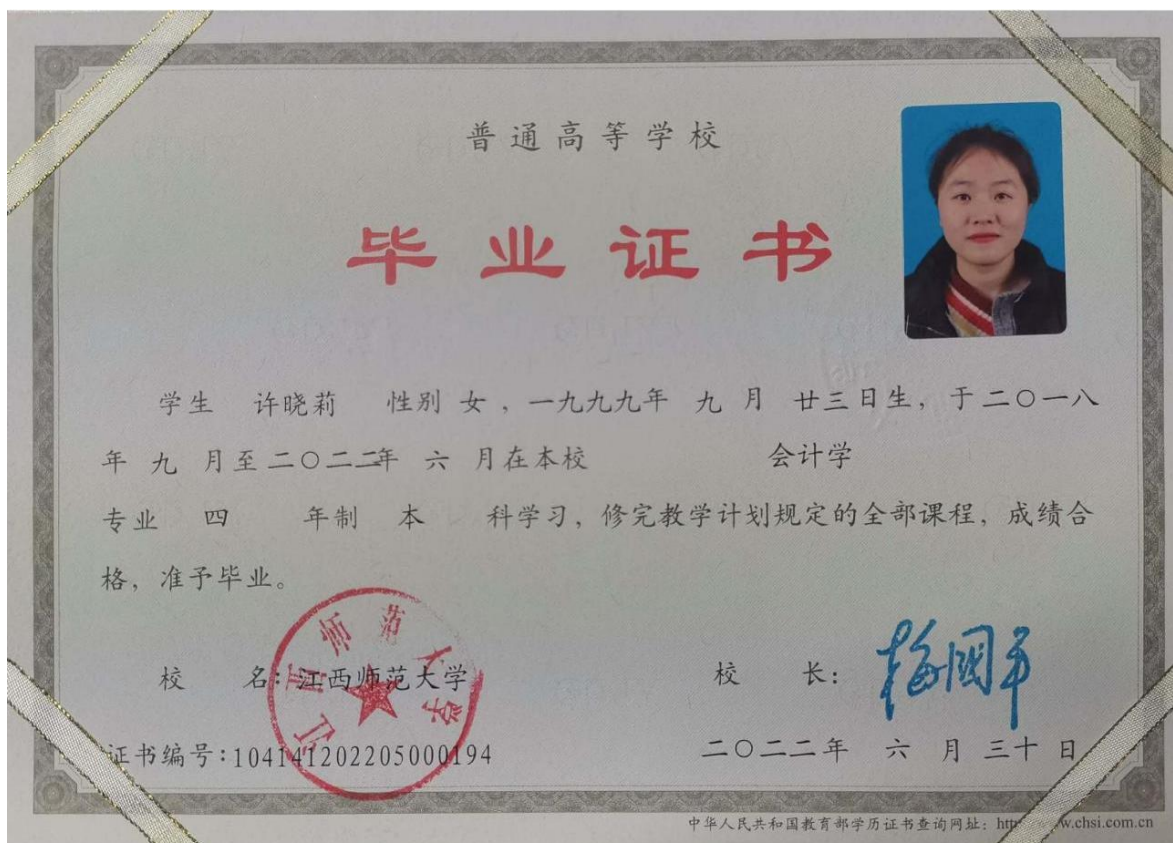 普通高等学校
毕业证书
学生 许晓莉 性别 女，一九九九年 九 月 廿三日生，于二〇一八
年 九 月至二〇二二年 六 月在本校 会计学
专业 四 年制 本 科学习，修完教学计划规定的全部课程，成绩合
格，准予毕业。
江西师范大学
校 名：江西师范大学
校 长：梅国平
证书编号：104141202205000194
二〇二二年 六 月 三十 日
中华人民共和国教育部学历证书查询网址：htt w.chsi.com.cn